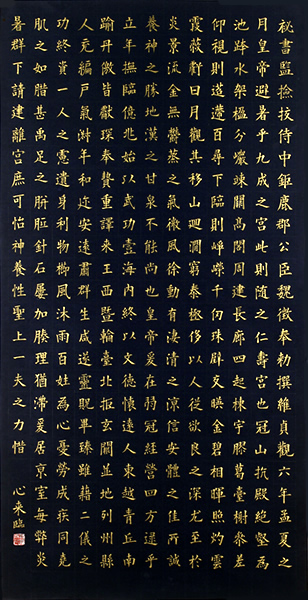 秘書監撿挍侍中鉅鹿郡公臣魏徵奉勅撰維貞觀六年孟夏之
月皇帝避暑乎九成之宮此則随之仁壽宮也冠山抗殿絕壑為
池跨水架楹分巖竦闕高閣周建長廊四起棟宇膠葛臺榭參差
仰視則迢遰百尋下臨則崢嶸千仞珠璧交暎金碧相暉照灼雲
霞蔽虧日月觀其移山迴澗窮泰極侈以人從欲良足深尤至於
炎景流金無鬱蒸之氣微風徐動有淒清之涼信安體之佳所誠
養神之勝地漢之甘泉不能尚也皇帝爰在弱冠經營四方逮乎
立年撫臨億兆始以武功壹海內終以文德懷遠人東越青丘南
踰丹徼皆獻琛奉贄重譯來王西暨輪臺北拒玄闕並地列州縣
人充編戶氣淑年和迩安遠肅群生咸遂靈貺畢臻雖藉二儀之
功終資一人之慮遺身利物櫛風沐雨百姓為心憂勞成疾同堯
肌之如腊甚禹足之胼胝針石屢加腠理猶滯爰居京室每弊炎
暑群下請建離宮庶可怡神養性聖上一夫之力惜
心來臨